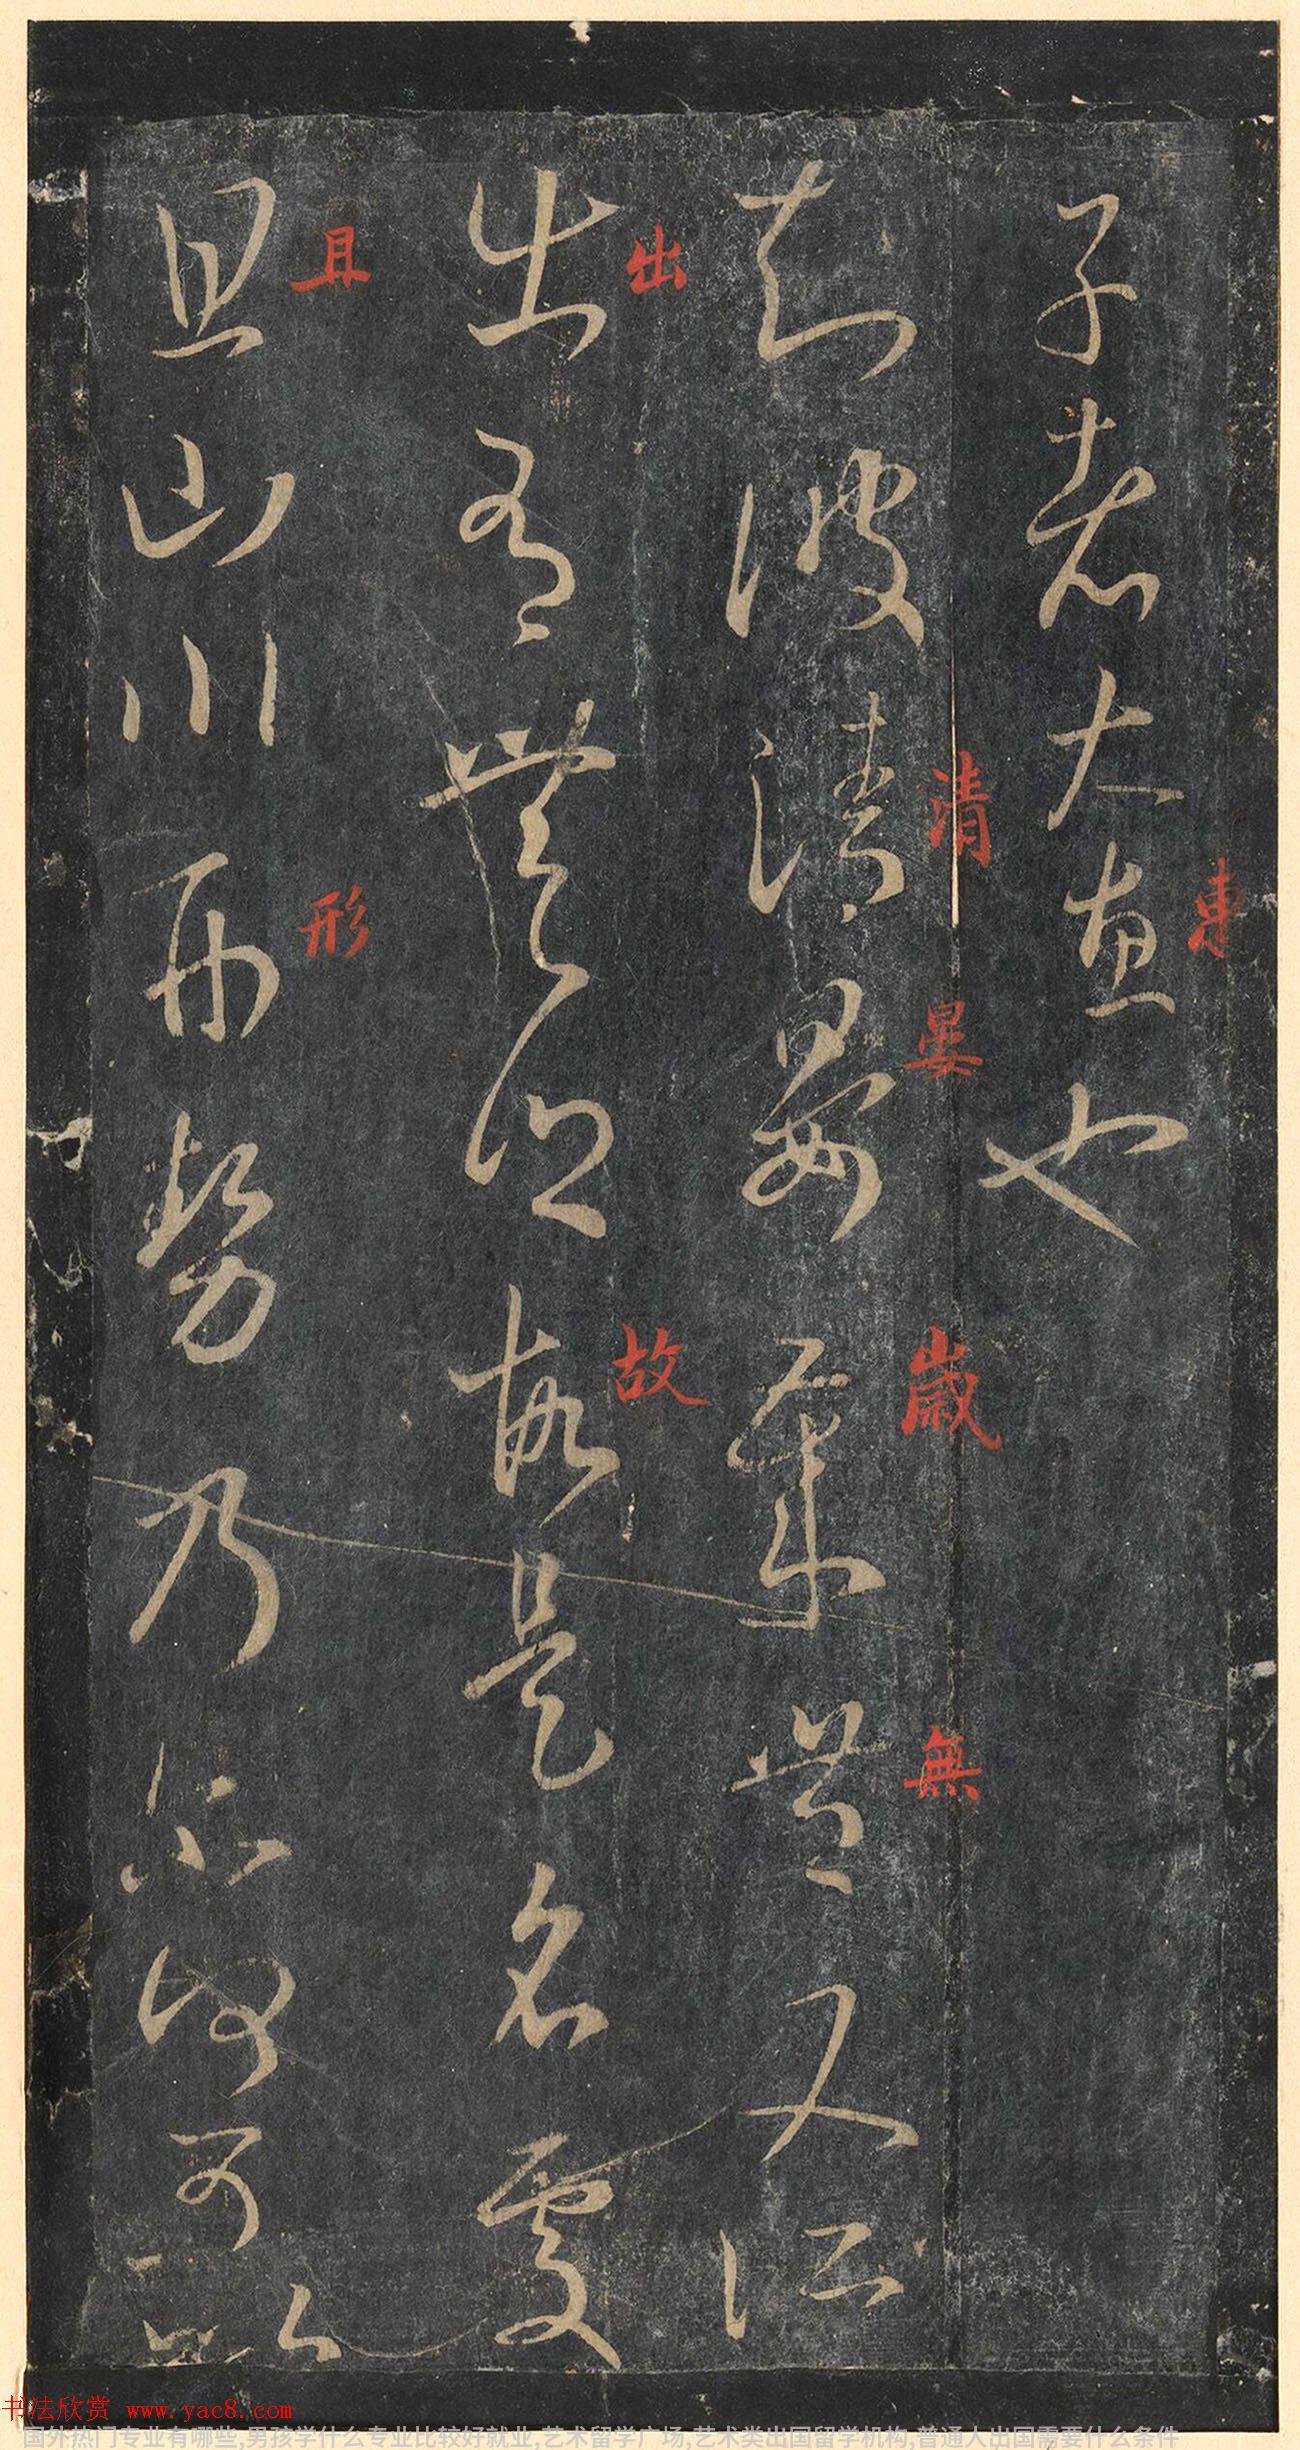 子者大惠也
惠
知彼清晏歲豐又所
清
晏
歲
無
出有無乏故是名處
出
故
且山川形勢乃爾何可以
且
形
书法欣赏 www.yac8.com
国外热门专业有哪些,男孩学什么专业比较好就业,艺术留学广场,艺术类出国留学机构,普通人出国需要什么条件